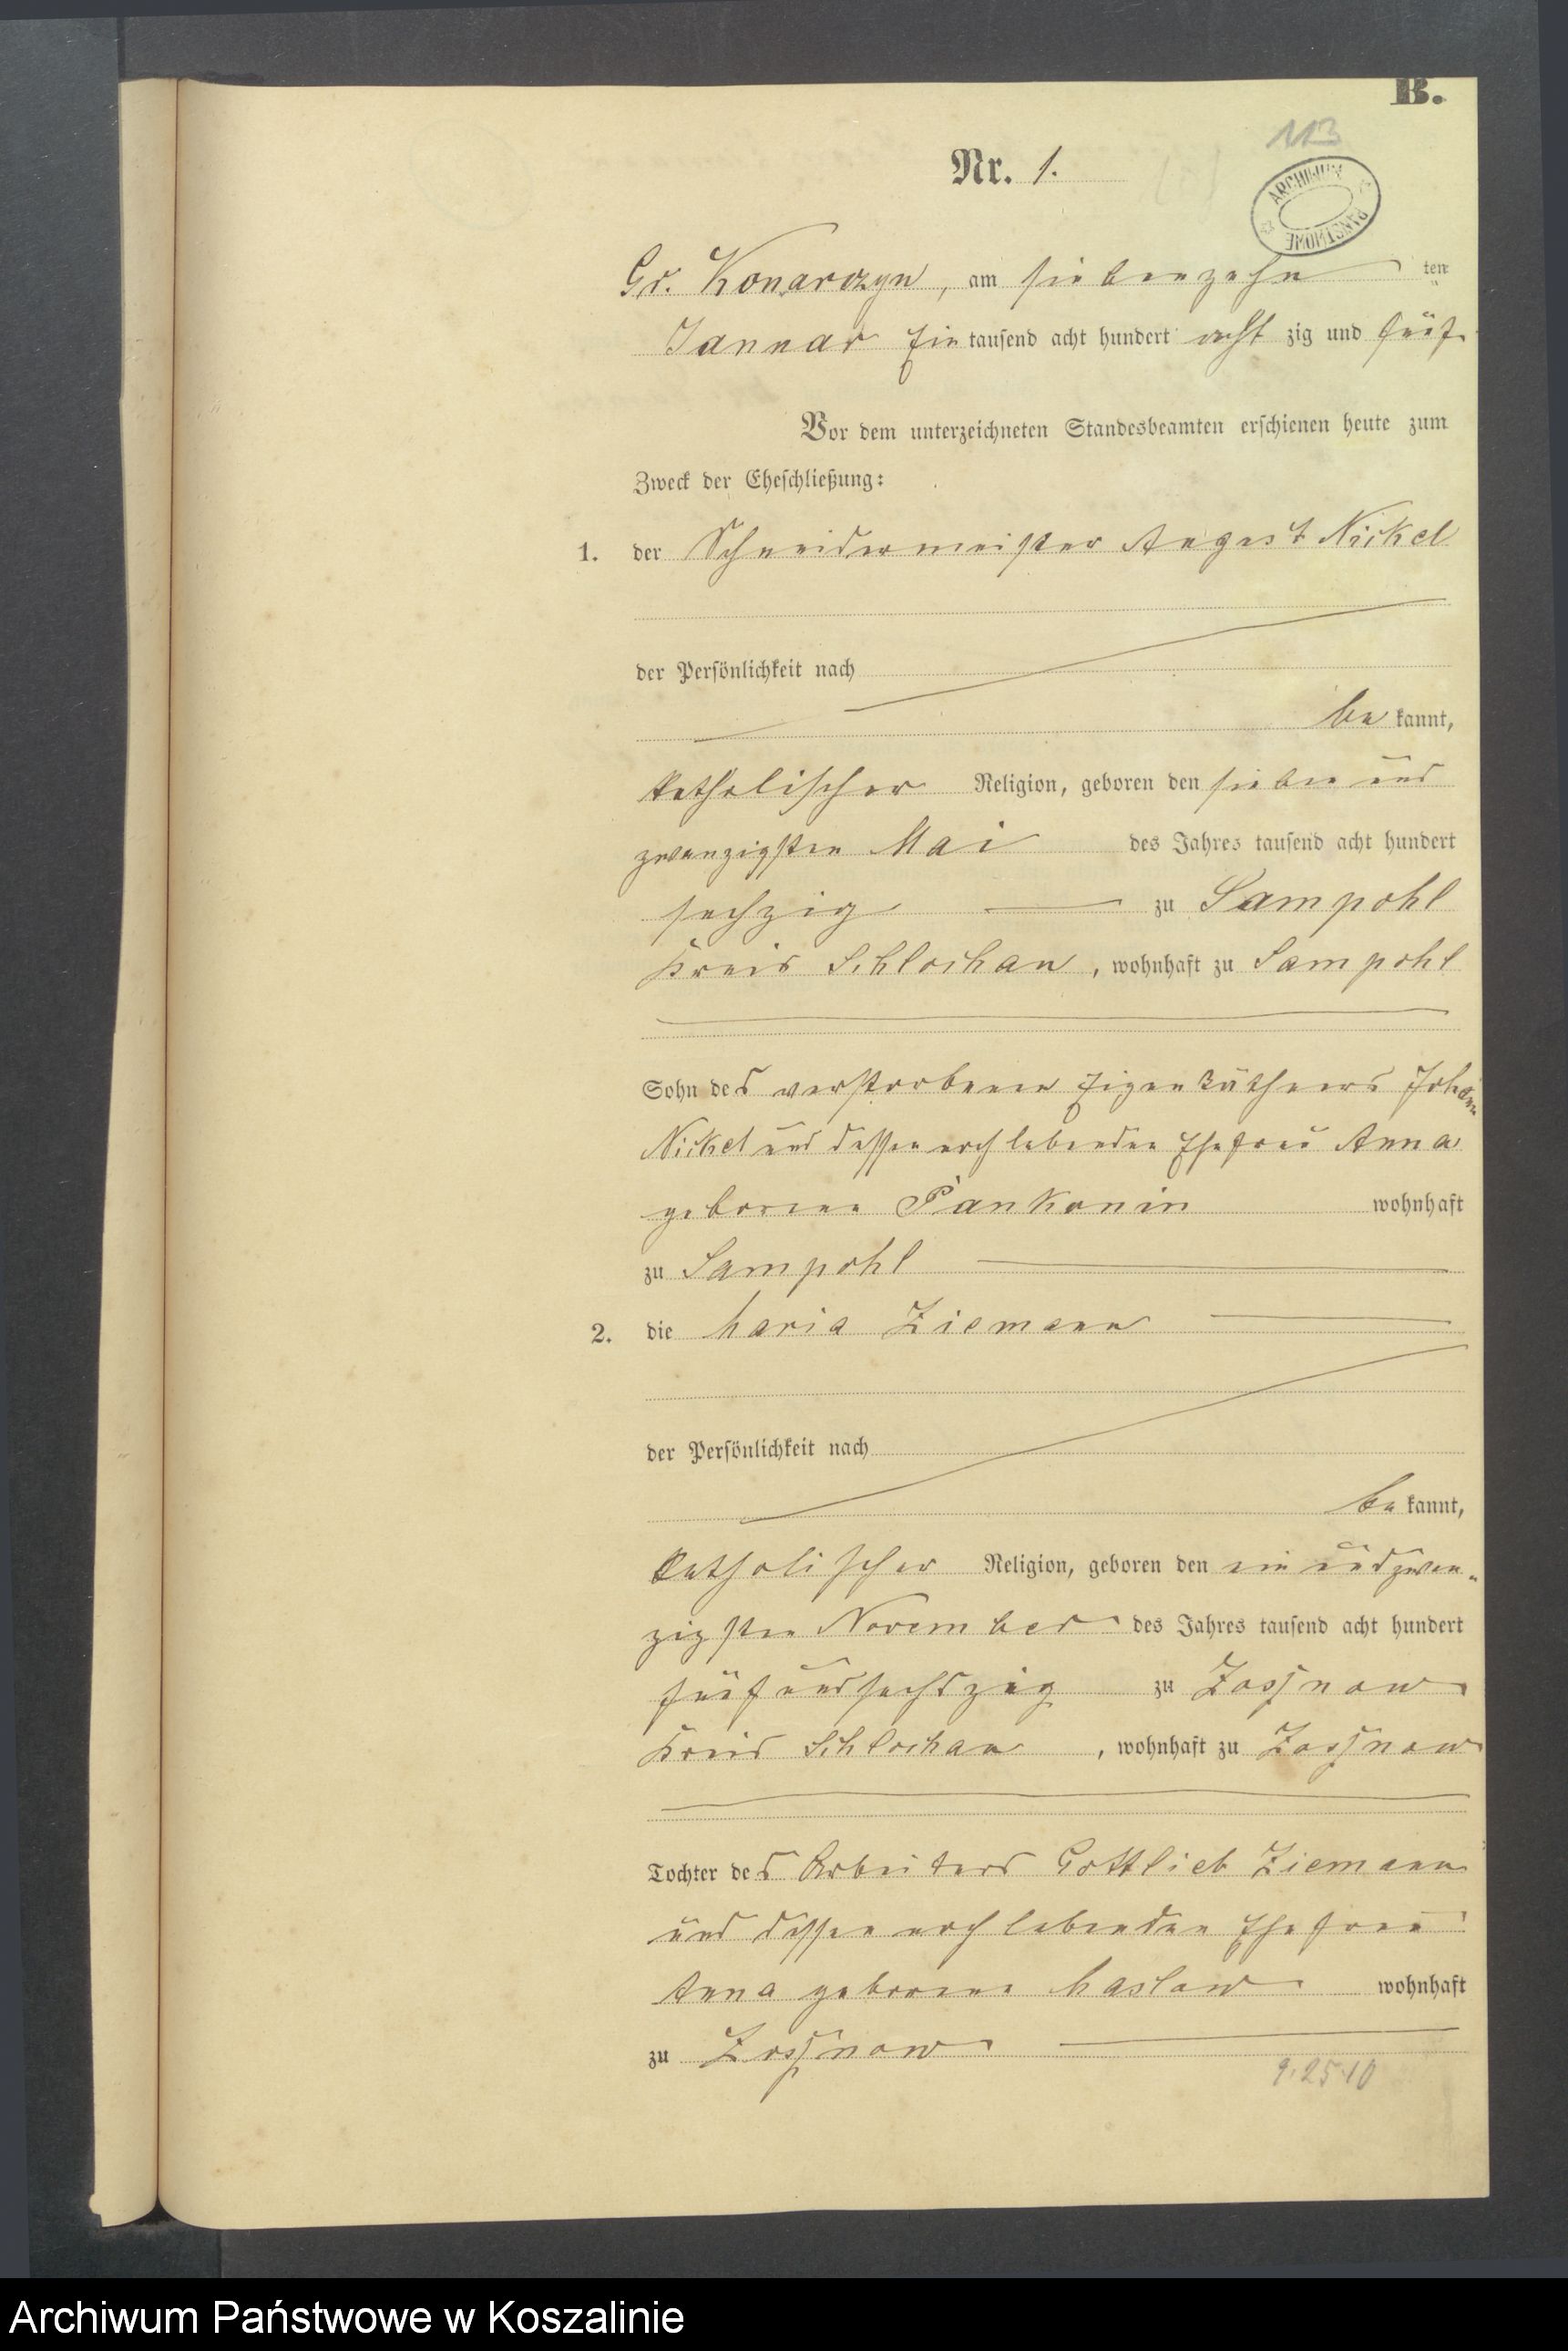 B.
113
Nr. 1.
ARCHIWUM PAŃSTWOWE
Gr. Konarczyn, am siebenzehn ten
Januar Ein tausend acht hundert acht zig und fünf
Vor dem unterzeichneten Standesbeamten erschienen heute zum
Zweck der Eheschließung:
1. der Schneidermeister August Nickel
der Persönlichkeit nach
be kannt,
katholischer Religion, geboren den sieben und
zwanzigsten Mai des Jahres tausend acht hundert
sechzig zu Sampohl
Kreis Schlochau, wohnhaft zu Sampohl
Sohn des verstorbenen Eigenkäthners Johann
Nickel und dessen noch lebenden Ehefrau Anna
geborene Pankonin wohnhaft
zu Sampohl
2. die Maria Ziemann
der Persönlichkeit nach
be kannt,
katholischer Religion, geboren den ein und zwan-
zigsten November des Jahres tausend acht hundert
fünf und sechszig zu Zossnow
Kreis Schlochau, wohnhaft zu Zossnow
Tochter des Arbeiters Gottlieb Ziemann
und dessen noch lebenden Ehefrau
Anna geborene Maslow wohnhaft
zu Zossnow
9.25.10
Archiwum Państwowe w Koszalinie